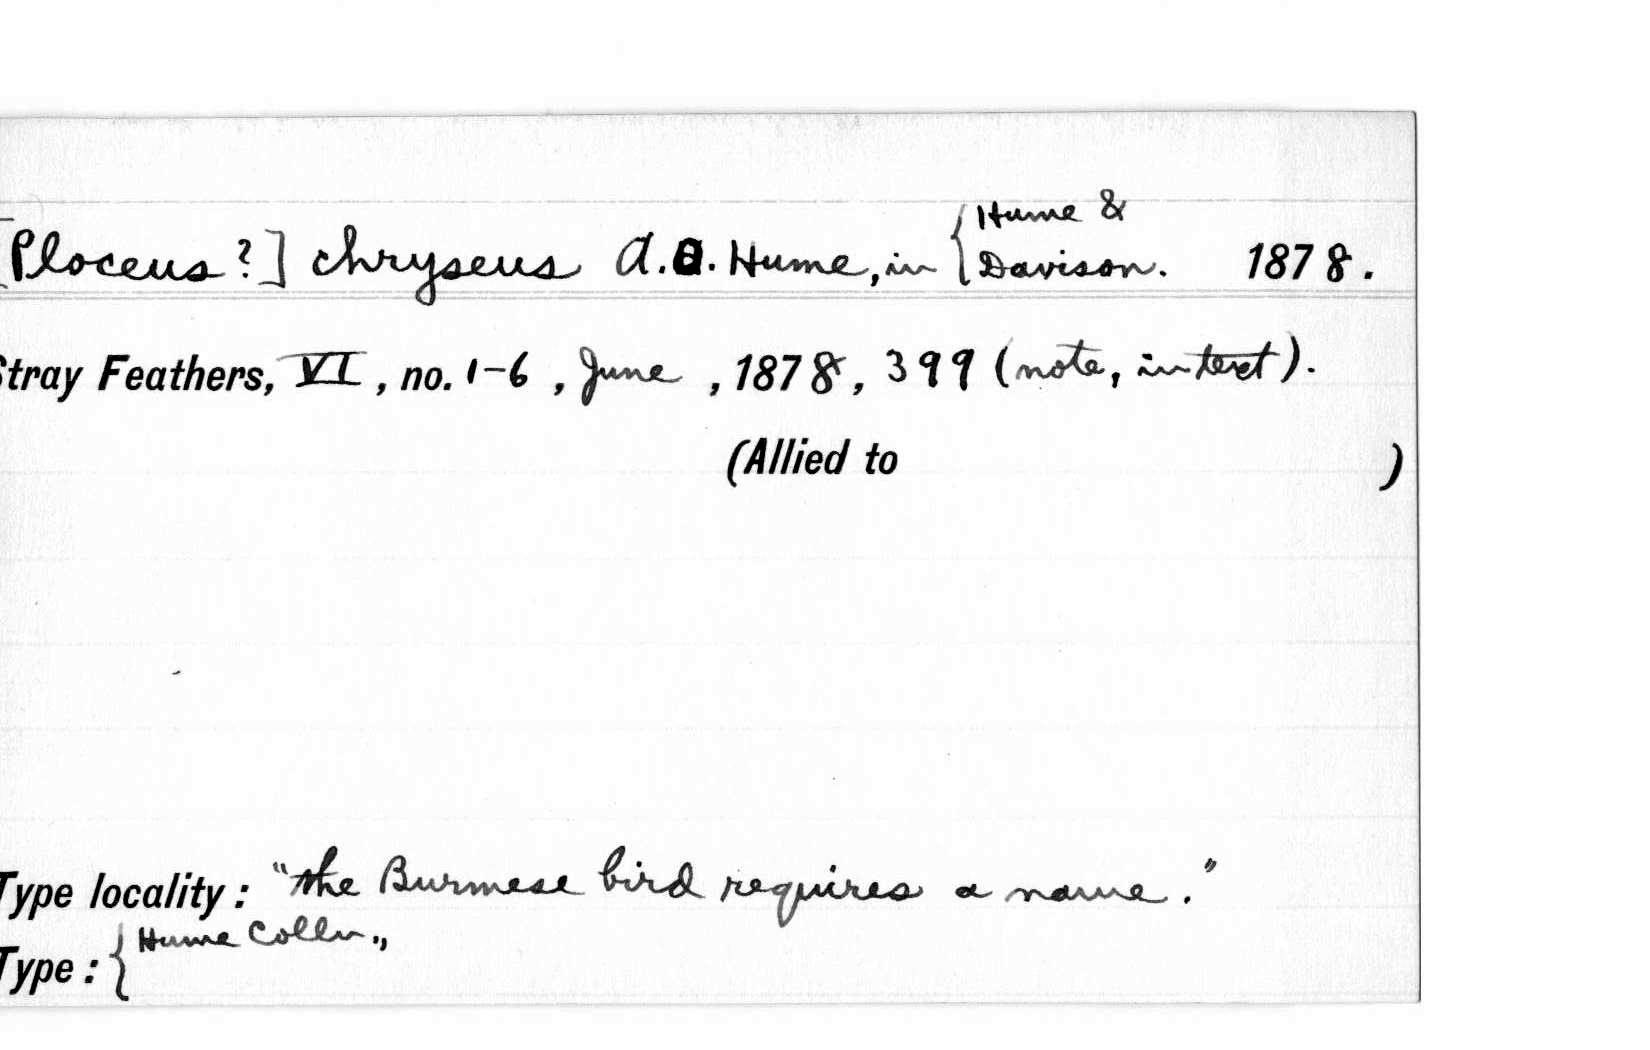 Hume &
[Ploceus ?] chryseus A.O. Hume, in { Davison. 1878.
Stray Feathers, VI, no. 1-6, June, 1878, 399 (note, in text).
(Allied to )
Type locality: "the Burmese bird requires a name."
Type: { Hume Colln.,